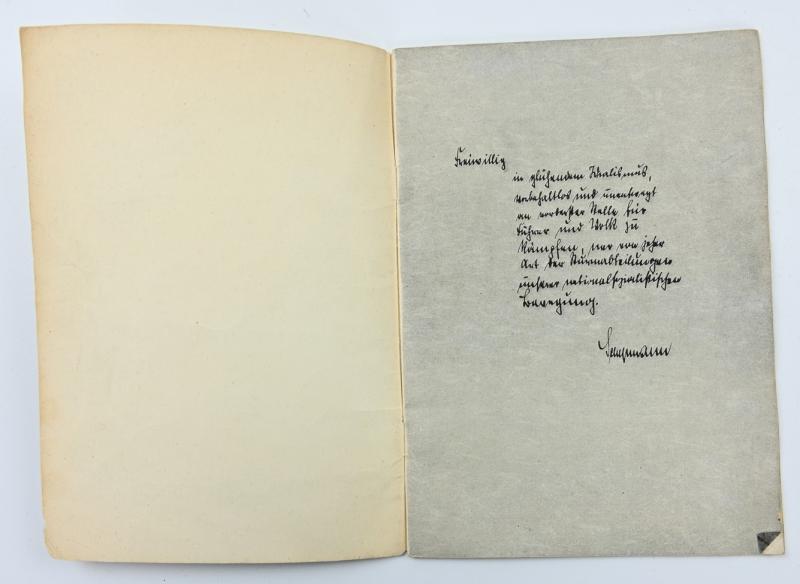 Freiwillig
in glühendem Idealismus,
vorbehaltlos und unentwegt
an vorderster Stelle für
Führer und Volk zu
kämpfen, war von jeher
Art der Sturmabteilungen
unserer nationalsozialistischen
Bewegung.